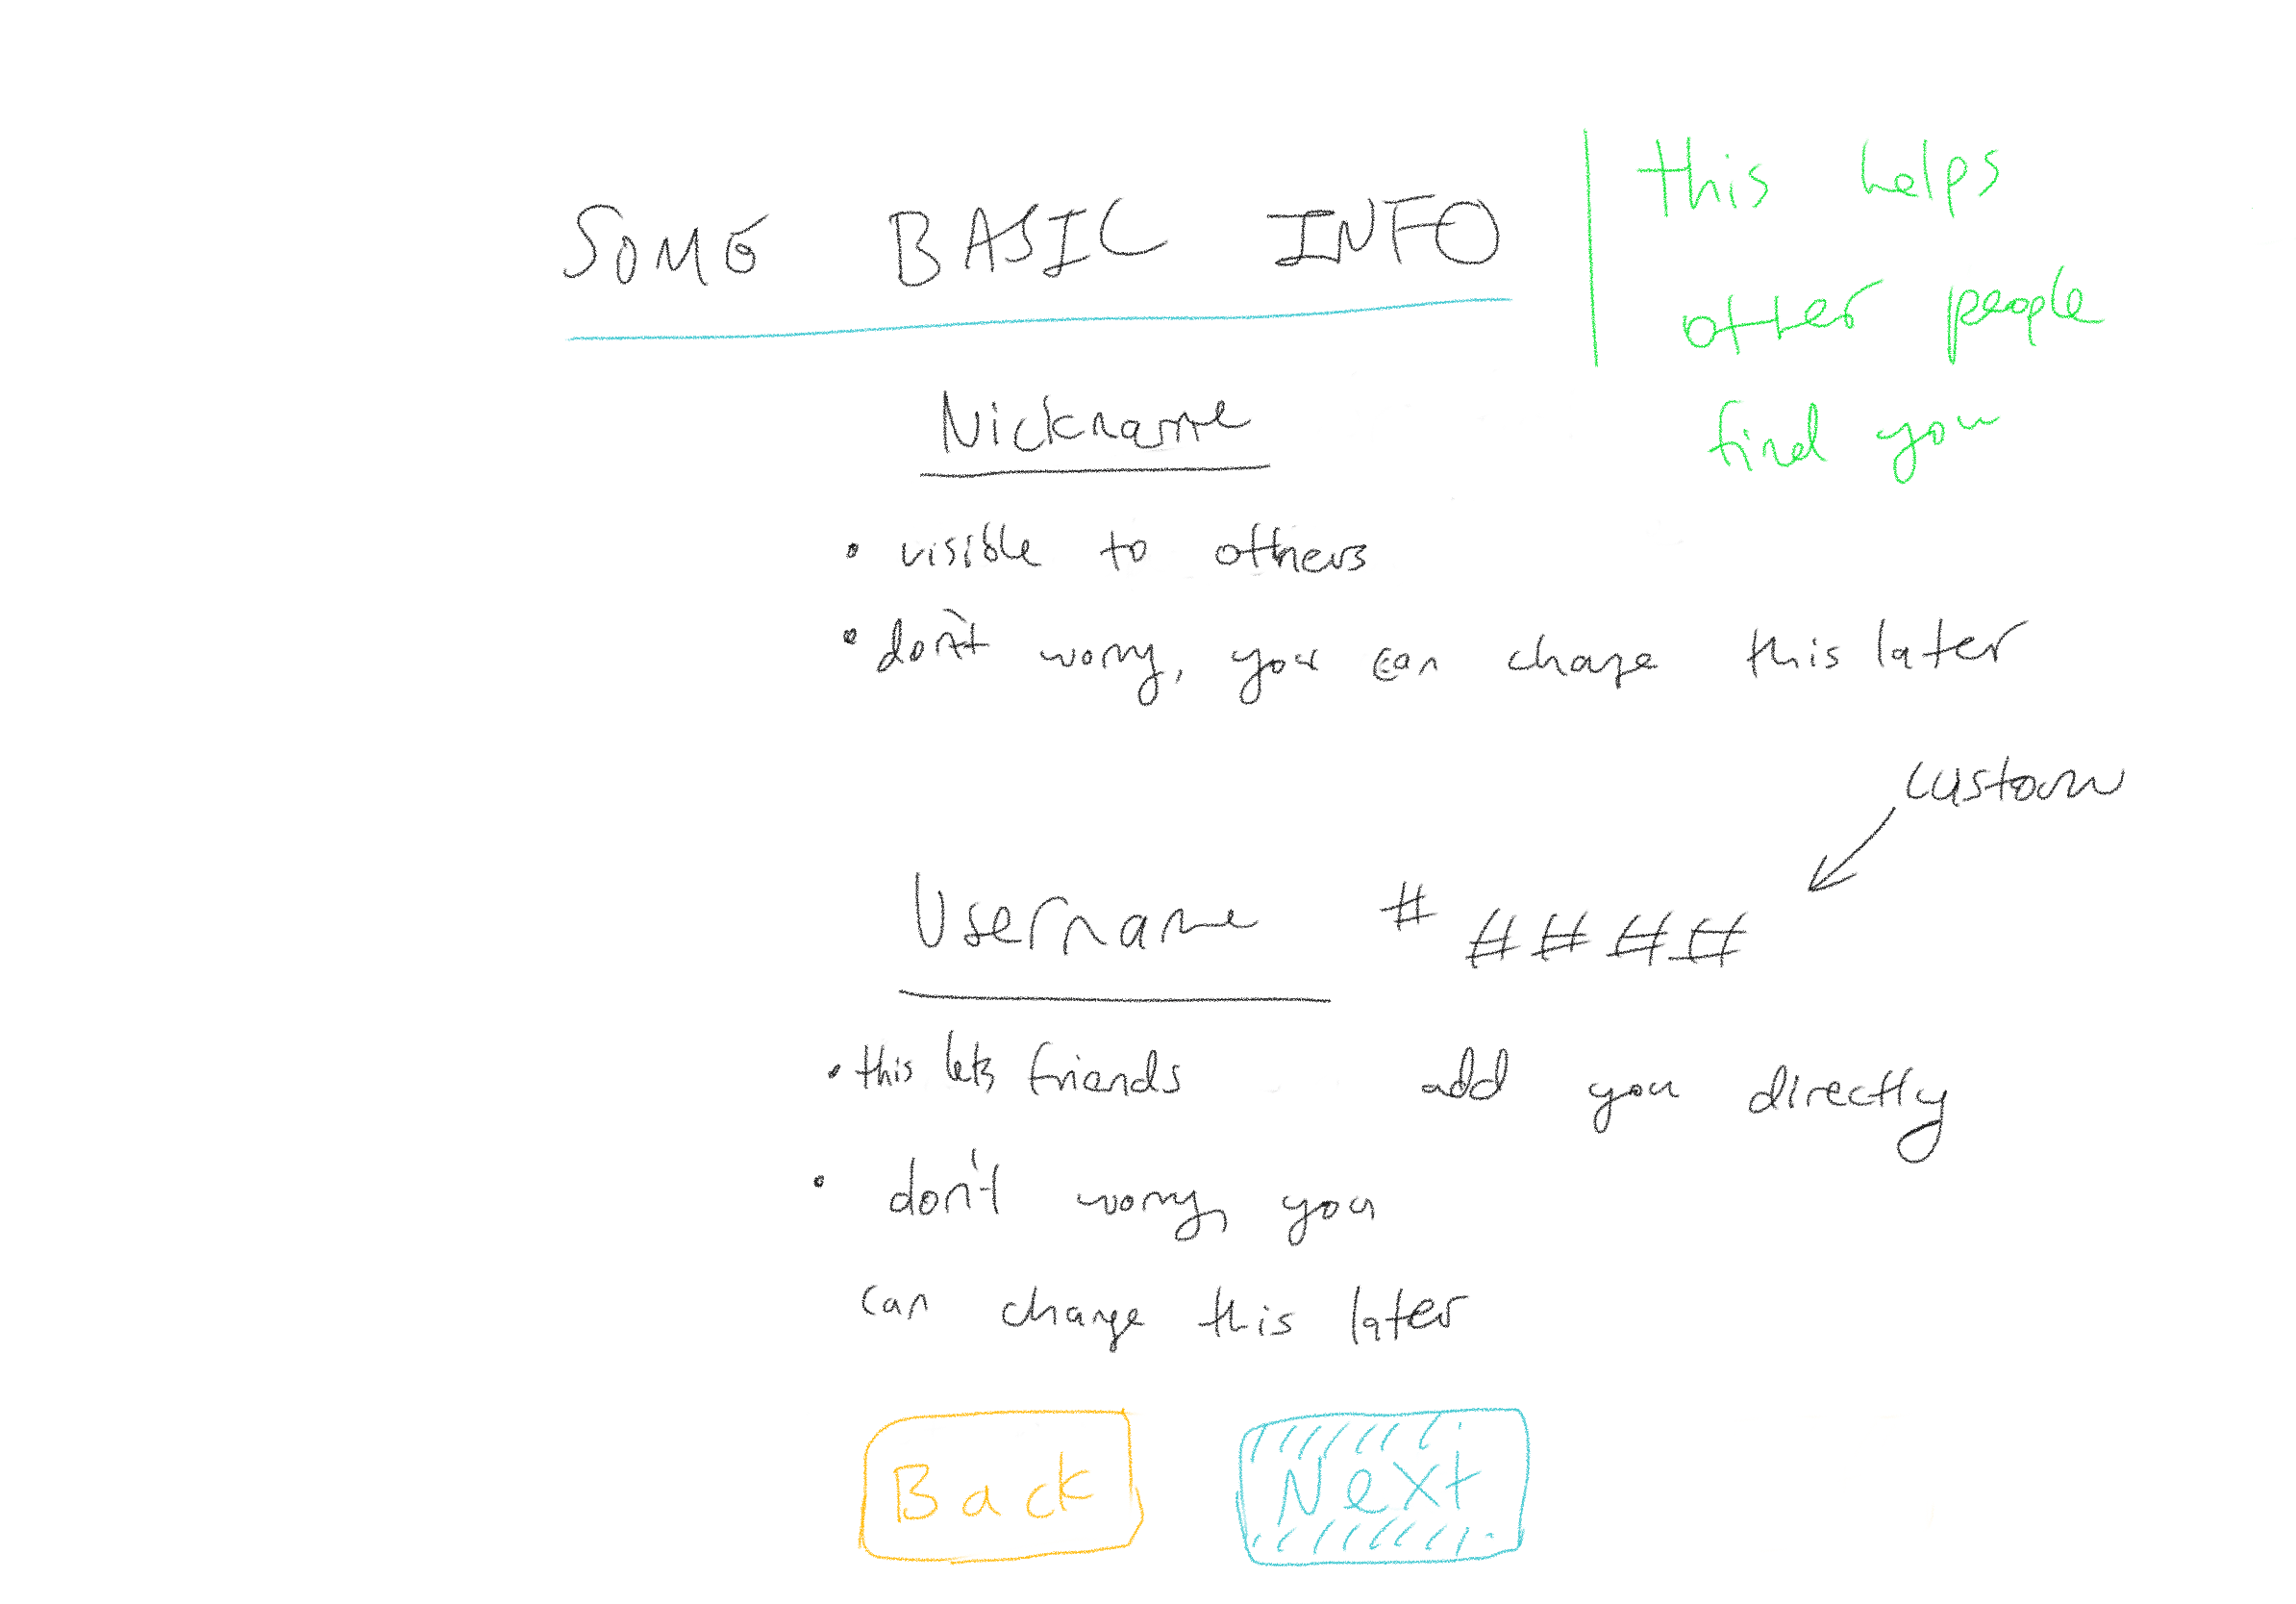 this helps
SOME BASIC INFO
other people
find you
Nickname
• visible to others
• don't worry, you can change this later
custom
Username # ####
• this lets friends add you directly
• don't worry, you
can change this later
Back Next